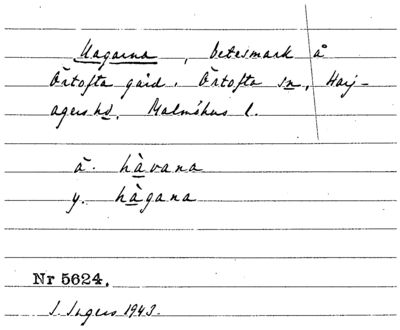 Hagarna, betesmark å
Örtofta gård. Örtofta sn, Harj-
agers hd, Malmöhus l.
ä. hàvana
y. hàgana
Nr 5624.
I. Ingers 1943.